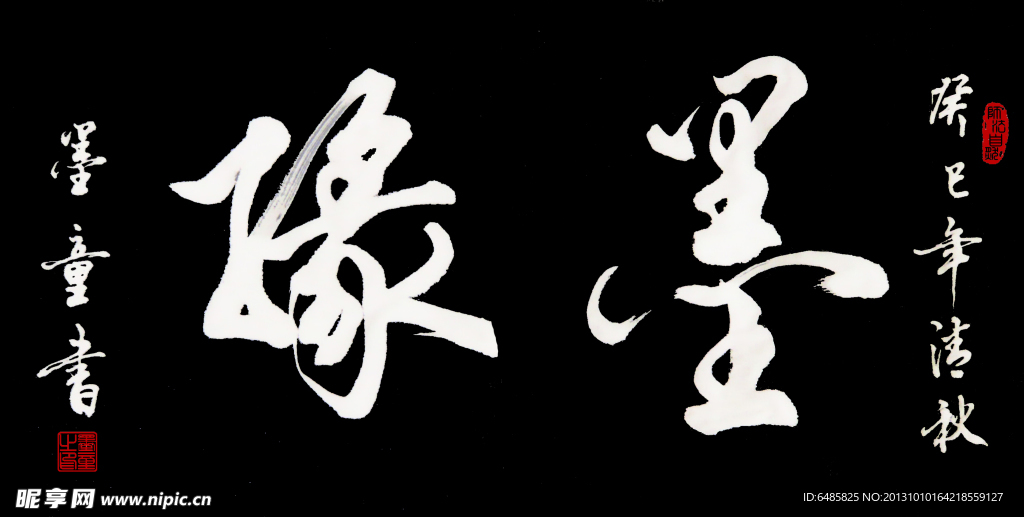 癸巳年清秋
墨缘
墨童书
墨童之印
昵享网 www.nipic.cn
ID:6485825 NO:20131010164218559127